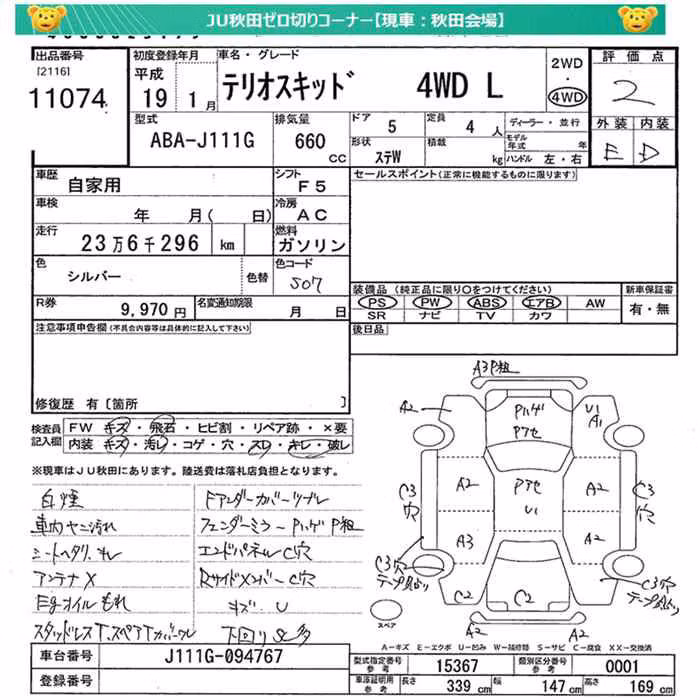 JU秋田ゼロ切りコーナー【現車：秋田会場】
出品番号
[2116]
11074
初度登録年月
平成
19年 1月
車名・グレード
テリオスキッド 4WD L
2WD
・
4WD
評価点
2
外装 内装
E D
型式
ABA-J111G
排気量
660 CC
ドア 5
定員 4 人
形状 ステW
積載 kg
ディーラー・並行
モデル年式 年
ハンドル 左・右
車歴 自家用
シフト F5
セールスポイント(正常に機能するものに限ります)
車検 年 月( 日)
冷房 AC
走行 23万6千296 km
燃料 ガソリン
色 シルバー
色替
色コード S07
装備品 (純正品に限り○をつけてください)
PS PW ABS エアB AW
SR ナビ TV カワ
新車保証書
有・無
R券 9,970円
名変通知期限 月 日
後日品
注意事項申告欄(不具合内容等は具体的に記入して下さい)
修復歴 有[箇所 ]
検査員記入欄
FW キズ・飛石・ヒビ割・リペア跡・×要
内装 キズ・汚レ・コゲ・穴・スレ・キレ・破レ
※現車はJU秋田にあります。陸送費は落札店負担となります。
白煙
車内ヤニ汚れ
シートヘタリ、キレ
アンテナX
Egオイルもれ
スタッドレス T.スペアTカバーワレ
Fアンダーカバーツブレ
フェンダーミラーPハゲ P粗
エンドパネルC穴
RサイドメンバーC穴
キズ U
下回りS多
A3P粗
A2
Pハゲ
Pアセ
U1
A1
C3
穴
A2
Pアセ
U1
A2
C3
穴
A3
A2
C3穴
テープ貼り
C2
C2
C2
C3穴
テープ貼り
A2
A2
スペア
A－キズ E－エクボ U－凹み W－補修跡 S－サビ C－腐食 XX－交換済
車台番号 J111G-094767
登録番号
型式指定番号 参考 15367
類別区分番号 参考 0001
車庫証明用 参考
長さ 339 cm
幅 147 cm
高さ 169 cm